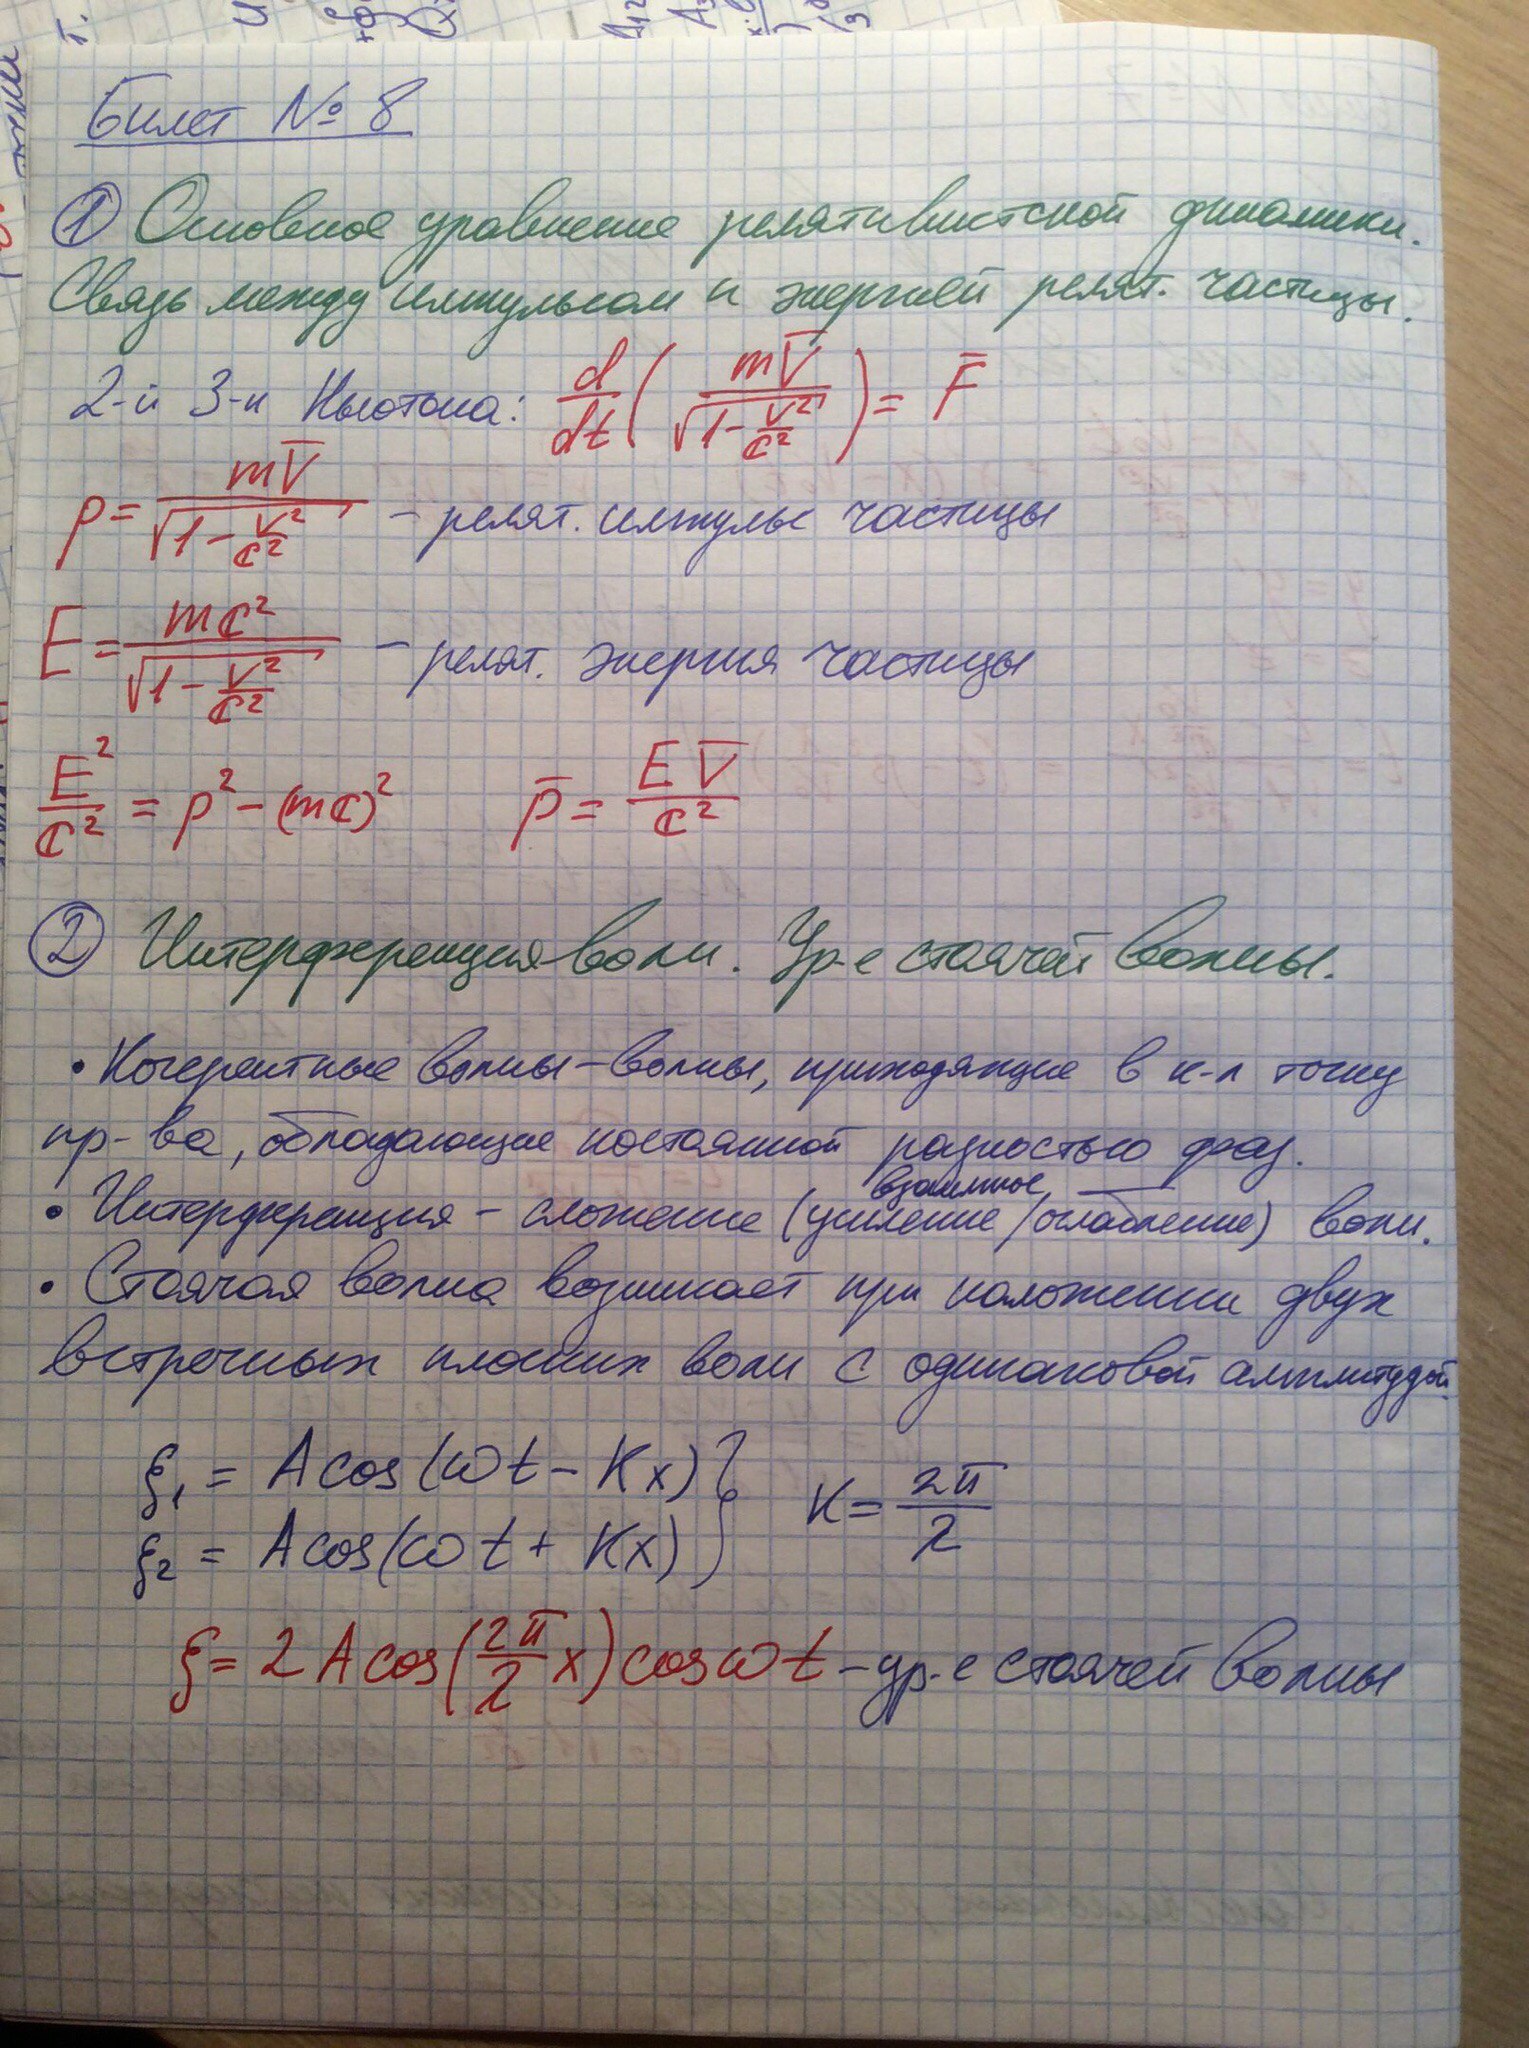 Билет № 8
① Основное уравнение релятивистской динамики.
Связь между импульсом и энергией релят. частицы.
2-й З-н Ньютона: d/dt ( mV̅ / √(1 - V²/c²) ) = F̅
p = mV̅ / √(1 - V²/c²) - релят. импульс частицы
E = mc² / √(1 - V²/c²) - релят. энергия частицы
E²/c² = p² - (mc)²   p̅ = EV̅/c²
② Интерференция волн. Ур-е стоячей волны.
• Когерентные волны - волны, приходящие в к-л точку
пр-ва, обладающие постоянной разностью фаз.
взаимное
• Интерференция - сложение (усиление/ослабление) волн.
• Стоячая волна возникает при наложении двух
встречных плоских волн с одинаковой амплитудой
ξ₁ = A cos(ωt - Kx)
ξ₂ = A cos(ωt + Kx) } K = 2π/λ
ξ = 2A cos(2π/λ x) cos ωt - ур-е стоячей волны